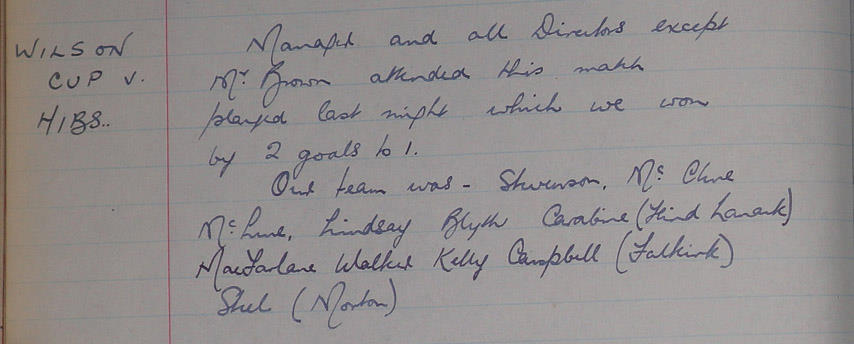 WILSON
CUP v.
HIBS..
Manager and all Directors except
Mr Brown attended this match
played last night which we won
by 2 goals to 1.
Our team was - Stevenson, Mc Clure
McLure, Lindsay Blyth Carabine (Third Lanark)
MacFarlane Walker Kelly Campbell (Falkirk)
(Morton)